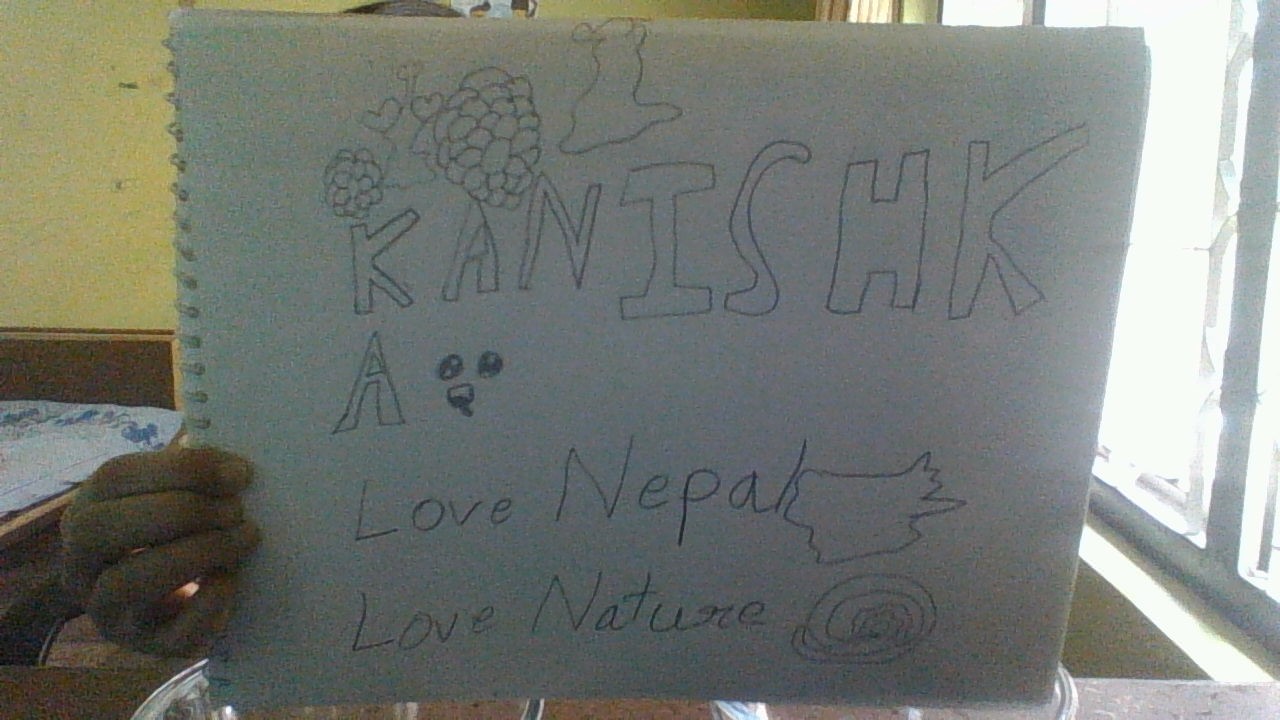 KANISHK
A
Love Nepal
Love Nature